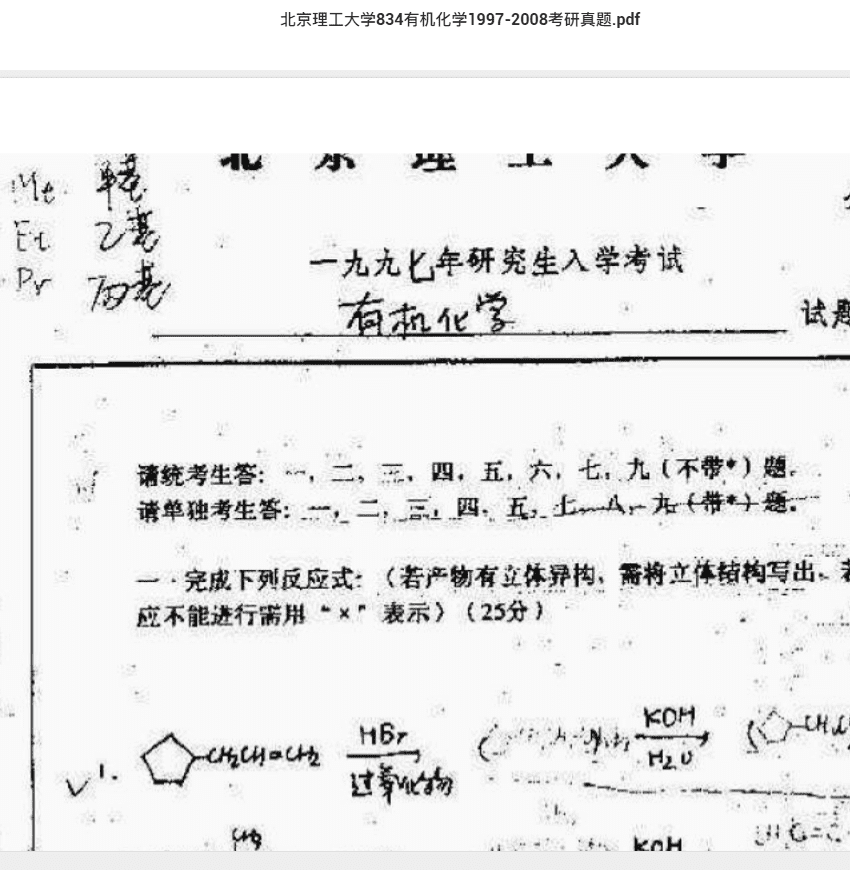 北京理工大学834有机化学1997-2008考研真题.pdf
北京理工大学
Me 甲基
Et 乙基
Pr 丙基
一九九七年研究生入学考试
有机化学
试题
请统考生答：一，二，三，四，五，六，七，九（不带*）题。
请单独考生答：一，二，三，四，五，七，八，九（带*）题。
一．完成下列反应式：（若产物有立体异构，需将立体结构写出，若
应不能进行需用“×”表示）（25分）
√ 1. CH₂CH=CH₂ HBr 过氧化物 KOH H₂O
CH₃ KOH